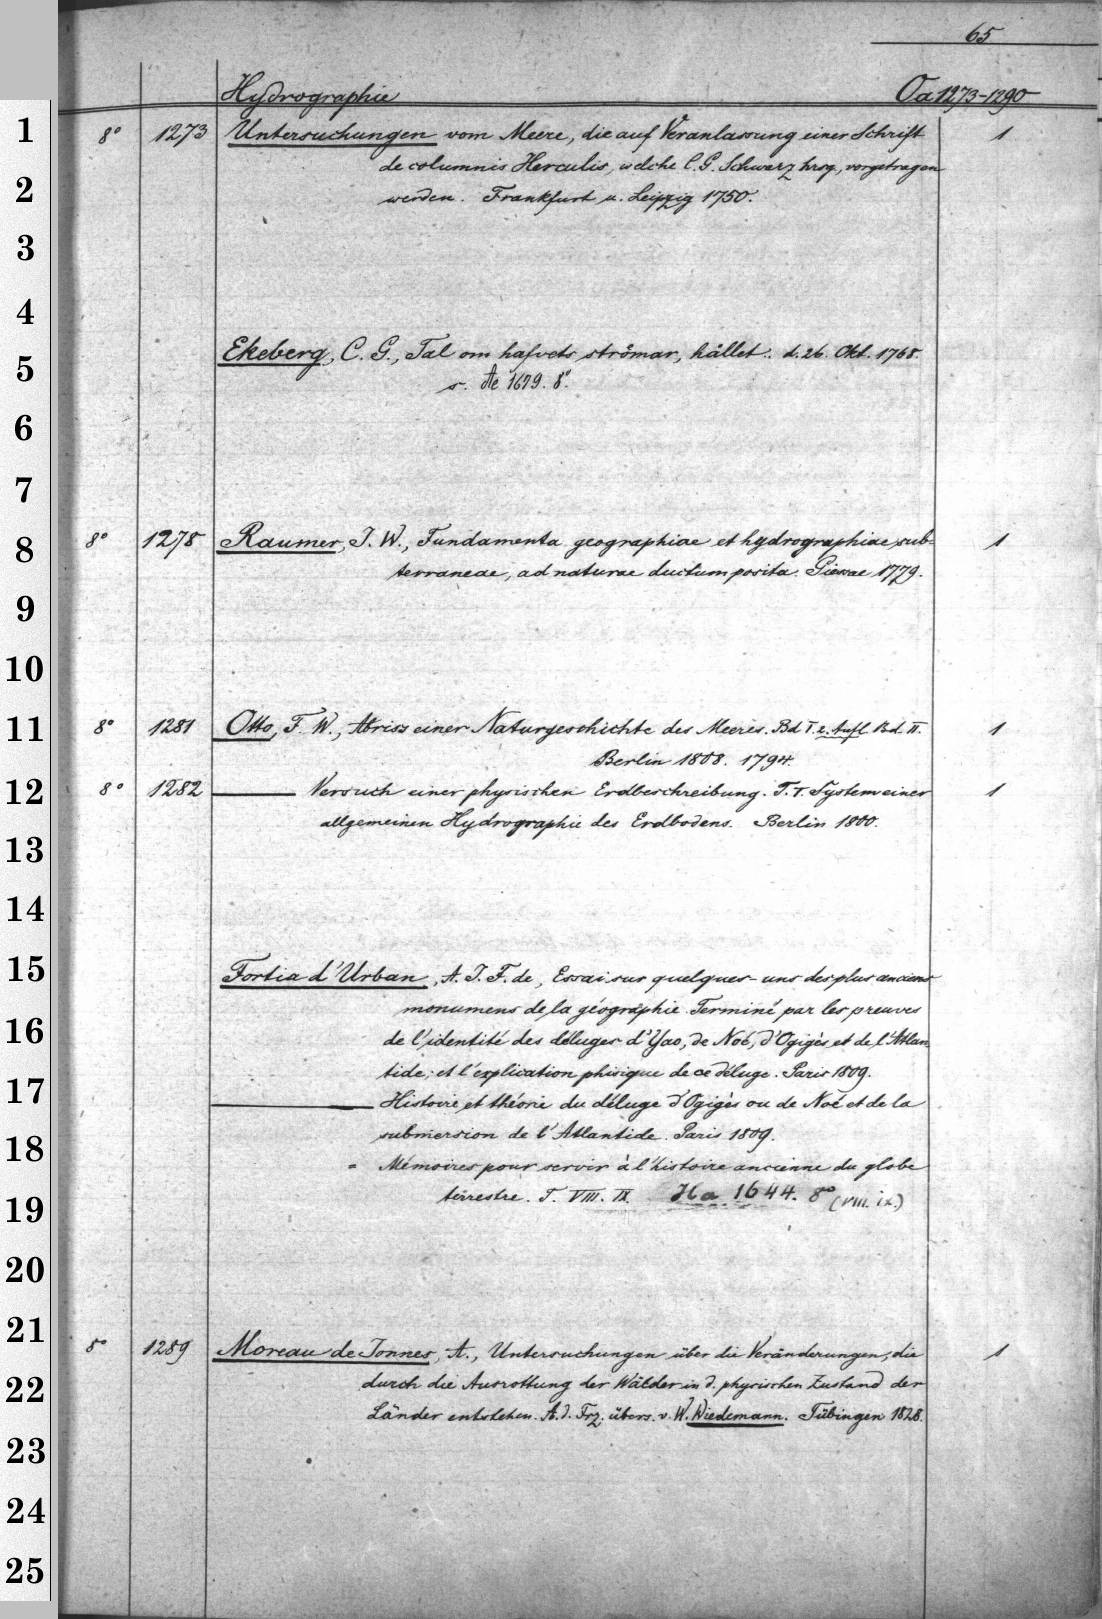 65
Hydrographie Oa 1273-1290
1 8° 1273 Untersuchungen vom Meere, die auf Veranlassung einer Schrift 1
de columnis Herculis, welche C. G. Schwarz hrsg., vorgetragen
2 werden. Frankfurt u. Leipzig 1750.
3
4
Ekeberg, C. G., Tal om hafvets strömar, hållet. d. 26. Okt. 1768.
5 s. Ae 1679. 8°.
6
7
8 8° 1278 Raumer, J. W., Fundamenta geographiae et hydrographiae sub- 1
terraneae, ad naturae ductum posita. Giessae 1779.
9
10
11 8° 1281 Otto, F. W., Abriss einer Naturgeschichte des Meeres. Bd I. 2. Aufl. Bd. II. 1
Berlin 1808. 1794.
12 8° 1282 Versuch einer physischen Erdbeschreibung. T. I. System einer 1
allgemeinen Hydrographie des Erdbodens. Berlin 1800.
13
14
15 Fortia d'Urban, A. J. F. de, Essai sur quelques-uns des plus anciens
monumens de la géographie. Terminé par les preuves
16 de l'identité des déluges d'Yao, de Noé, d'Ogigès et de l'Atlan
tide; et l'explication phisique de ce déluge. Paris 1809.
17 Histoire et théorie du déluge d'Ogigès ou de Noé et de la
submersion de l'Atlantide. Paris 1809.
18 = Mémoires pour servir à l'histoire ancienne du globe
19 terrestre. T. VIII. IX. Ha 1644. 8° (VIII. IX.)
20
21 8° 1289 Moreau de Jonnes, A., Untersuchungen über die Veränderungen, die 1
22 durch die Ausrottung der Wälder in d. physischen Zustand der
Länder entstehen. A. d. Frz. übers. v. W. Wiedemann. Tübingen 1828.
23
24
25